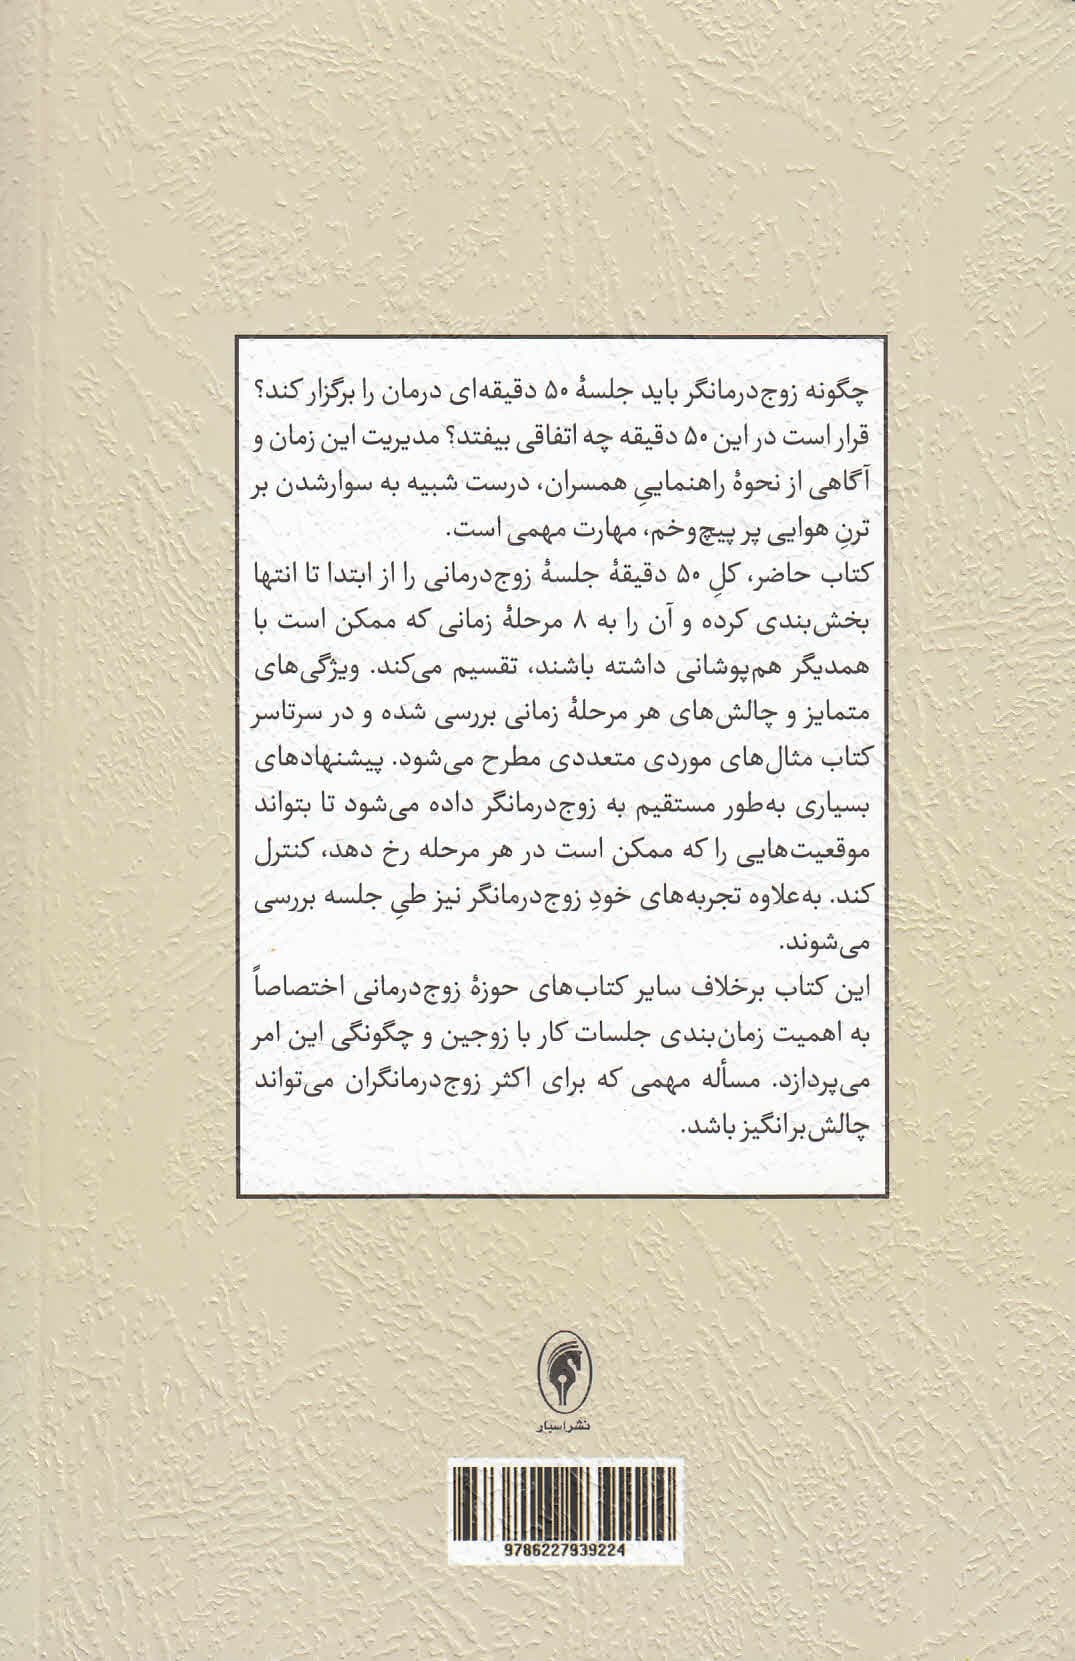 چگونه زوج‌درمانگر باید جلسهٔ ۵۰ دقیقه‌ای درمان را برگزار کند؟
قرار است در این ۵۰ دقیقه چه اتفاقی بیفتد؟ مدیریت این زمان و
آگاهی از نحوهٔ راهنماییِ همسران، درست شبیه به سوارشدن بر
ترنِ هوایی پر پیچ‌وخم، مهارت مهمی است.
کتاب حاضر، کلِ ۵۰ دقیقهٔ جلسهٔ زوج‌درمانی را از ابتدا تا انتها
بخش‌بندی کرده و آن را به ۸ مرحلهٔ زمانی که ممکن است با
همدیگر هم‌پوشانی داشته باشند، تقسیم می‌کند. ویژگی‌های
متمایز و چالش‌های هر مرحلهٔ زمانی بررسی شده و در سرتاسر
کتاب مثال‌های موردی متعددی مطرح می‌شود. پیشنهادهای
بسیاری به‌طور مستقیم به زوج‌درمانگر داده می‌شود تا بتواند
موقعیت‌هایی را که ممکن است در هر مرحله رخ دهد، کنترل
کند. به‌علاوه تجربه‌های خودِ زوج‌درمانگر نیز طیِ جلسه بررسی
می‌شوند.
این کتاب برخلاف سایر کتاب‌های حوزهٔ زوج‌درمانی اختصاصاً
به اهمیت زمان‌بندی جلسات کار با زوجین و چگونگی این امر
می‌پردازد. مسأله مهمی که برای اکثر زوج‌درمانگران می‌تواند
چالش‌برانگیز باشد.
نشر اسبار
9786227939224